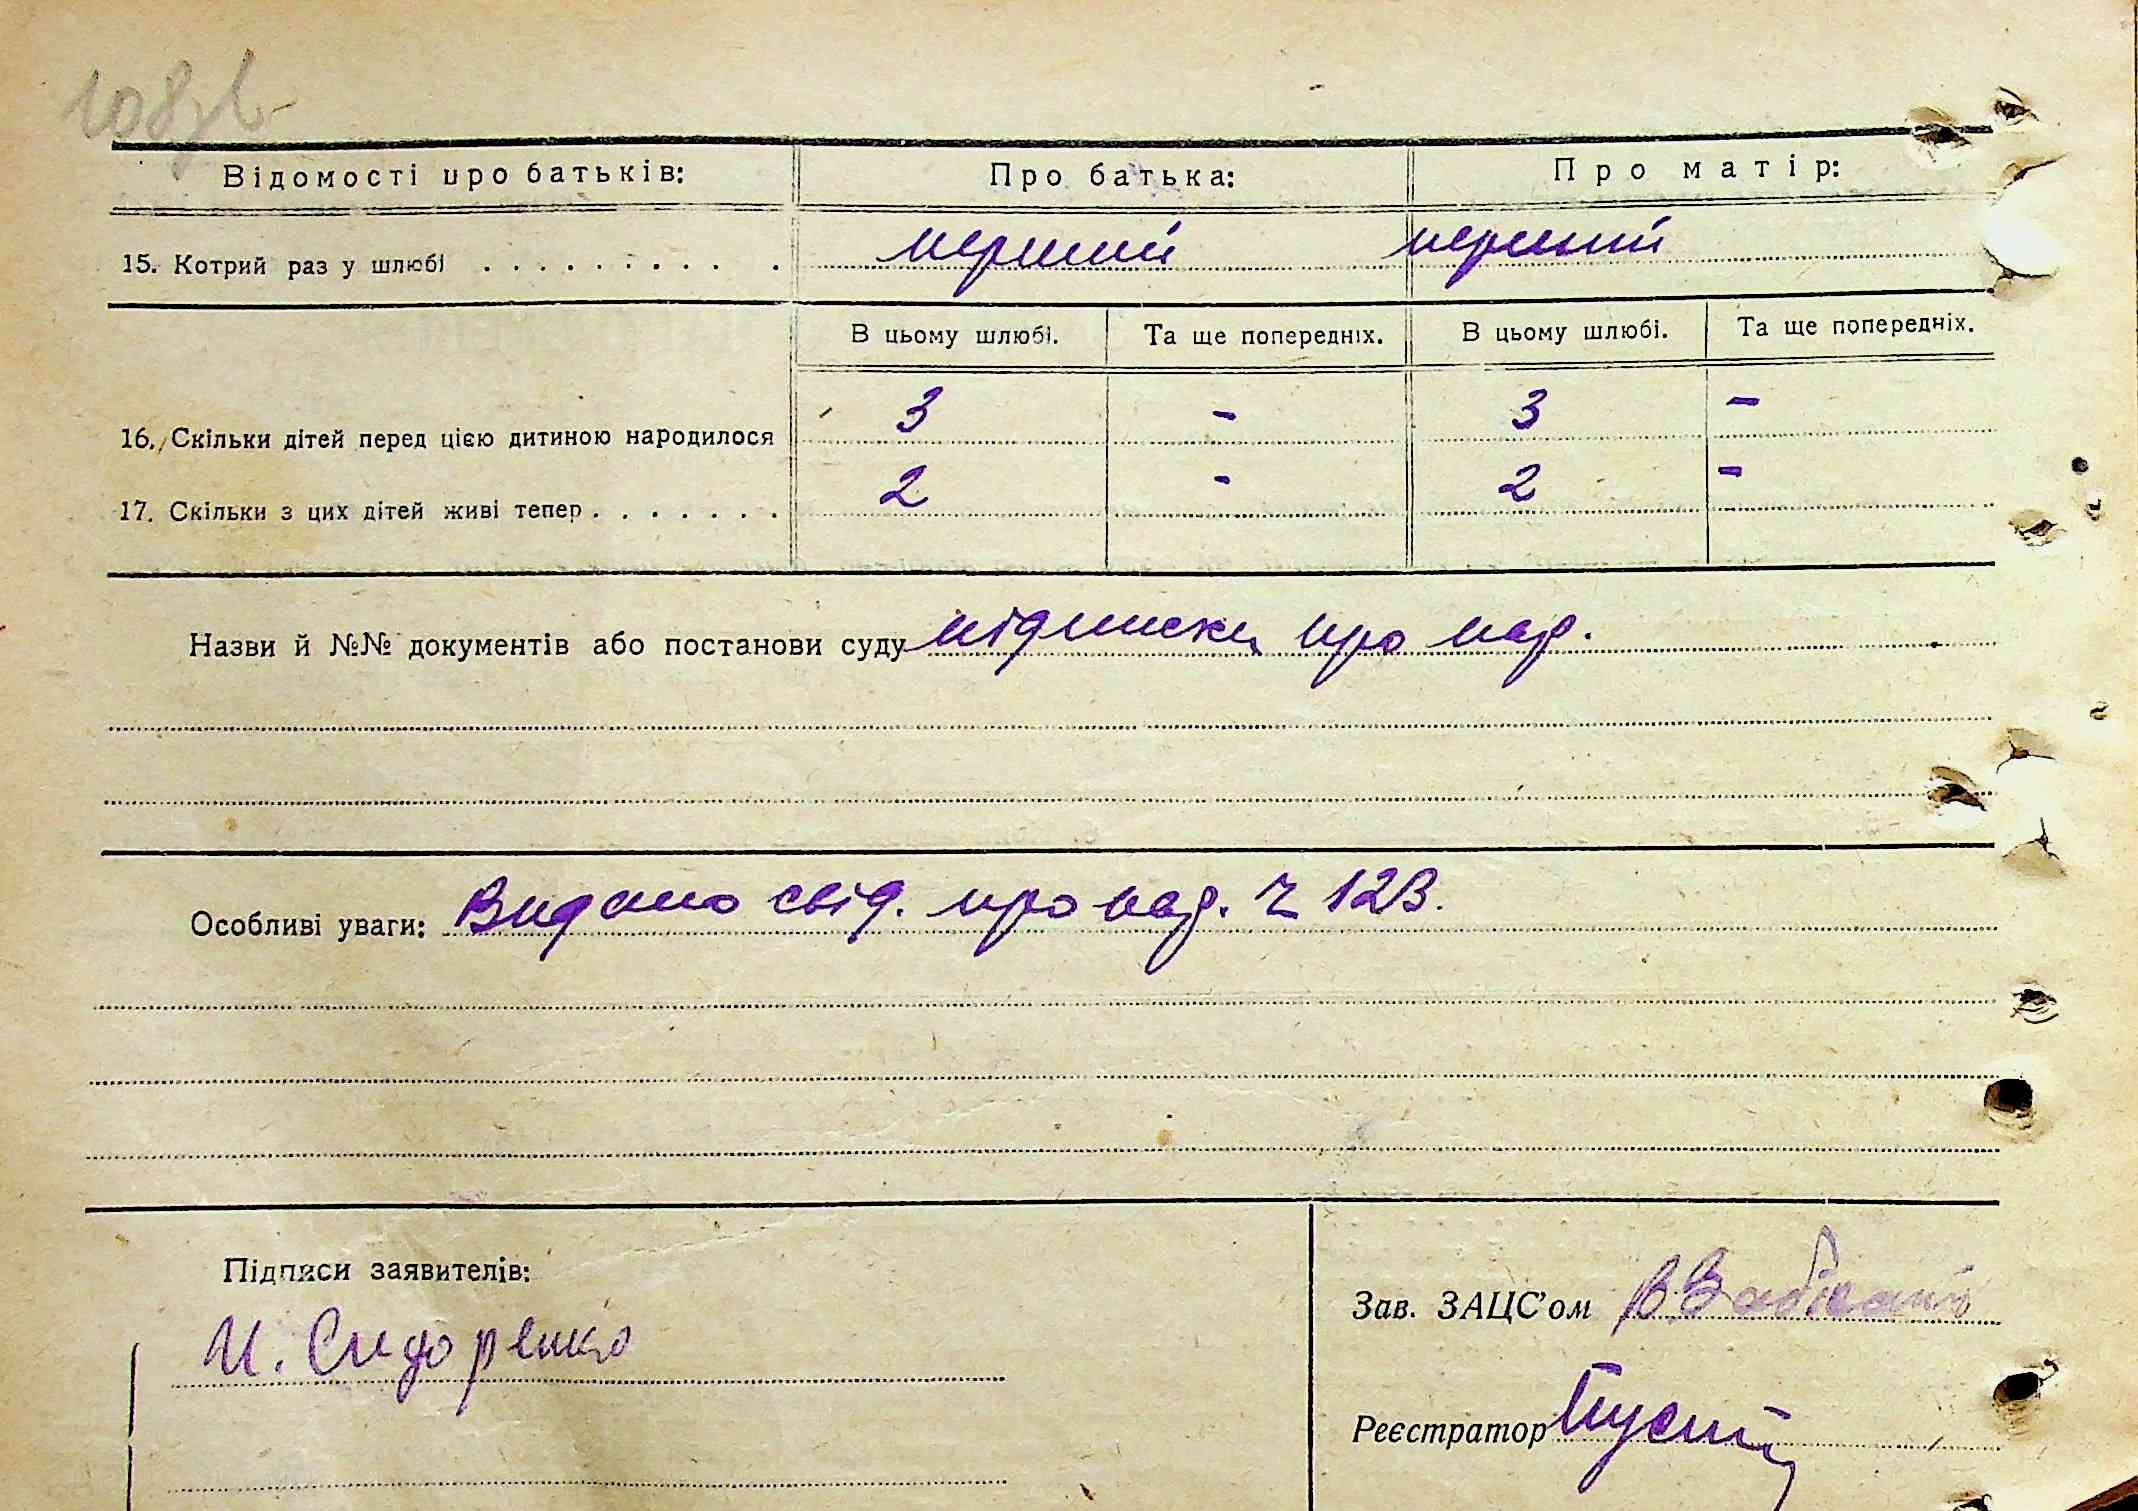 108зв
Відомості про батьків: Про батька: Про матір:
15. Котрий раз у шлюбі . . . . . . . . . . перший перший
В цьому шлюбі. Та ще попередніх. В цьому шлюбі. Та ще попередніх.
16. Скільки дітей перед цією дитиною народилося 3 - 3 -
17. Скільки з цих дітей живі тепер . . . . . . . 2 - 2 -
Назви й №№ документів або постанови суду підписки про нар.
Особливі уваги: Видано свід. про нар. ч 123.
Підписи заявителів:
Зав. ЗАЦС'ом
И. Сидоренко
Реєстратор